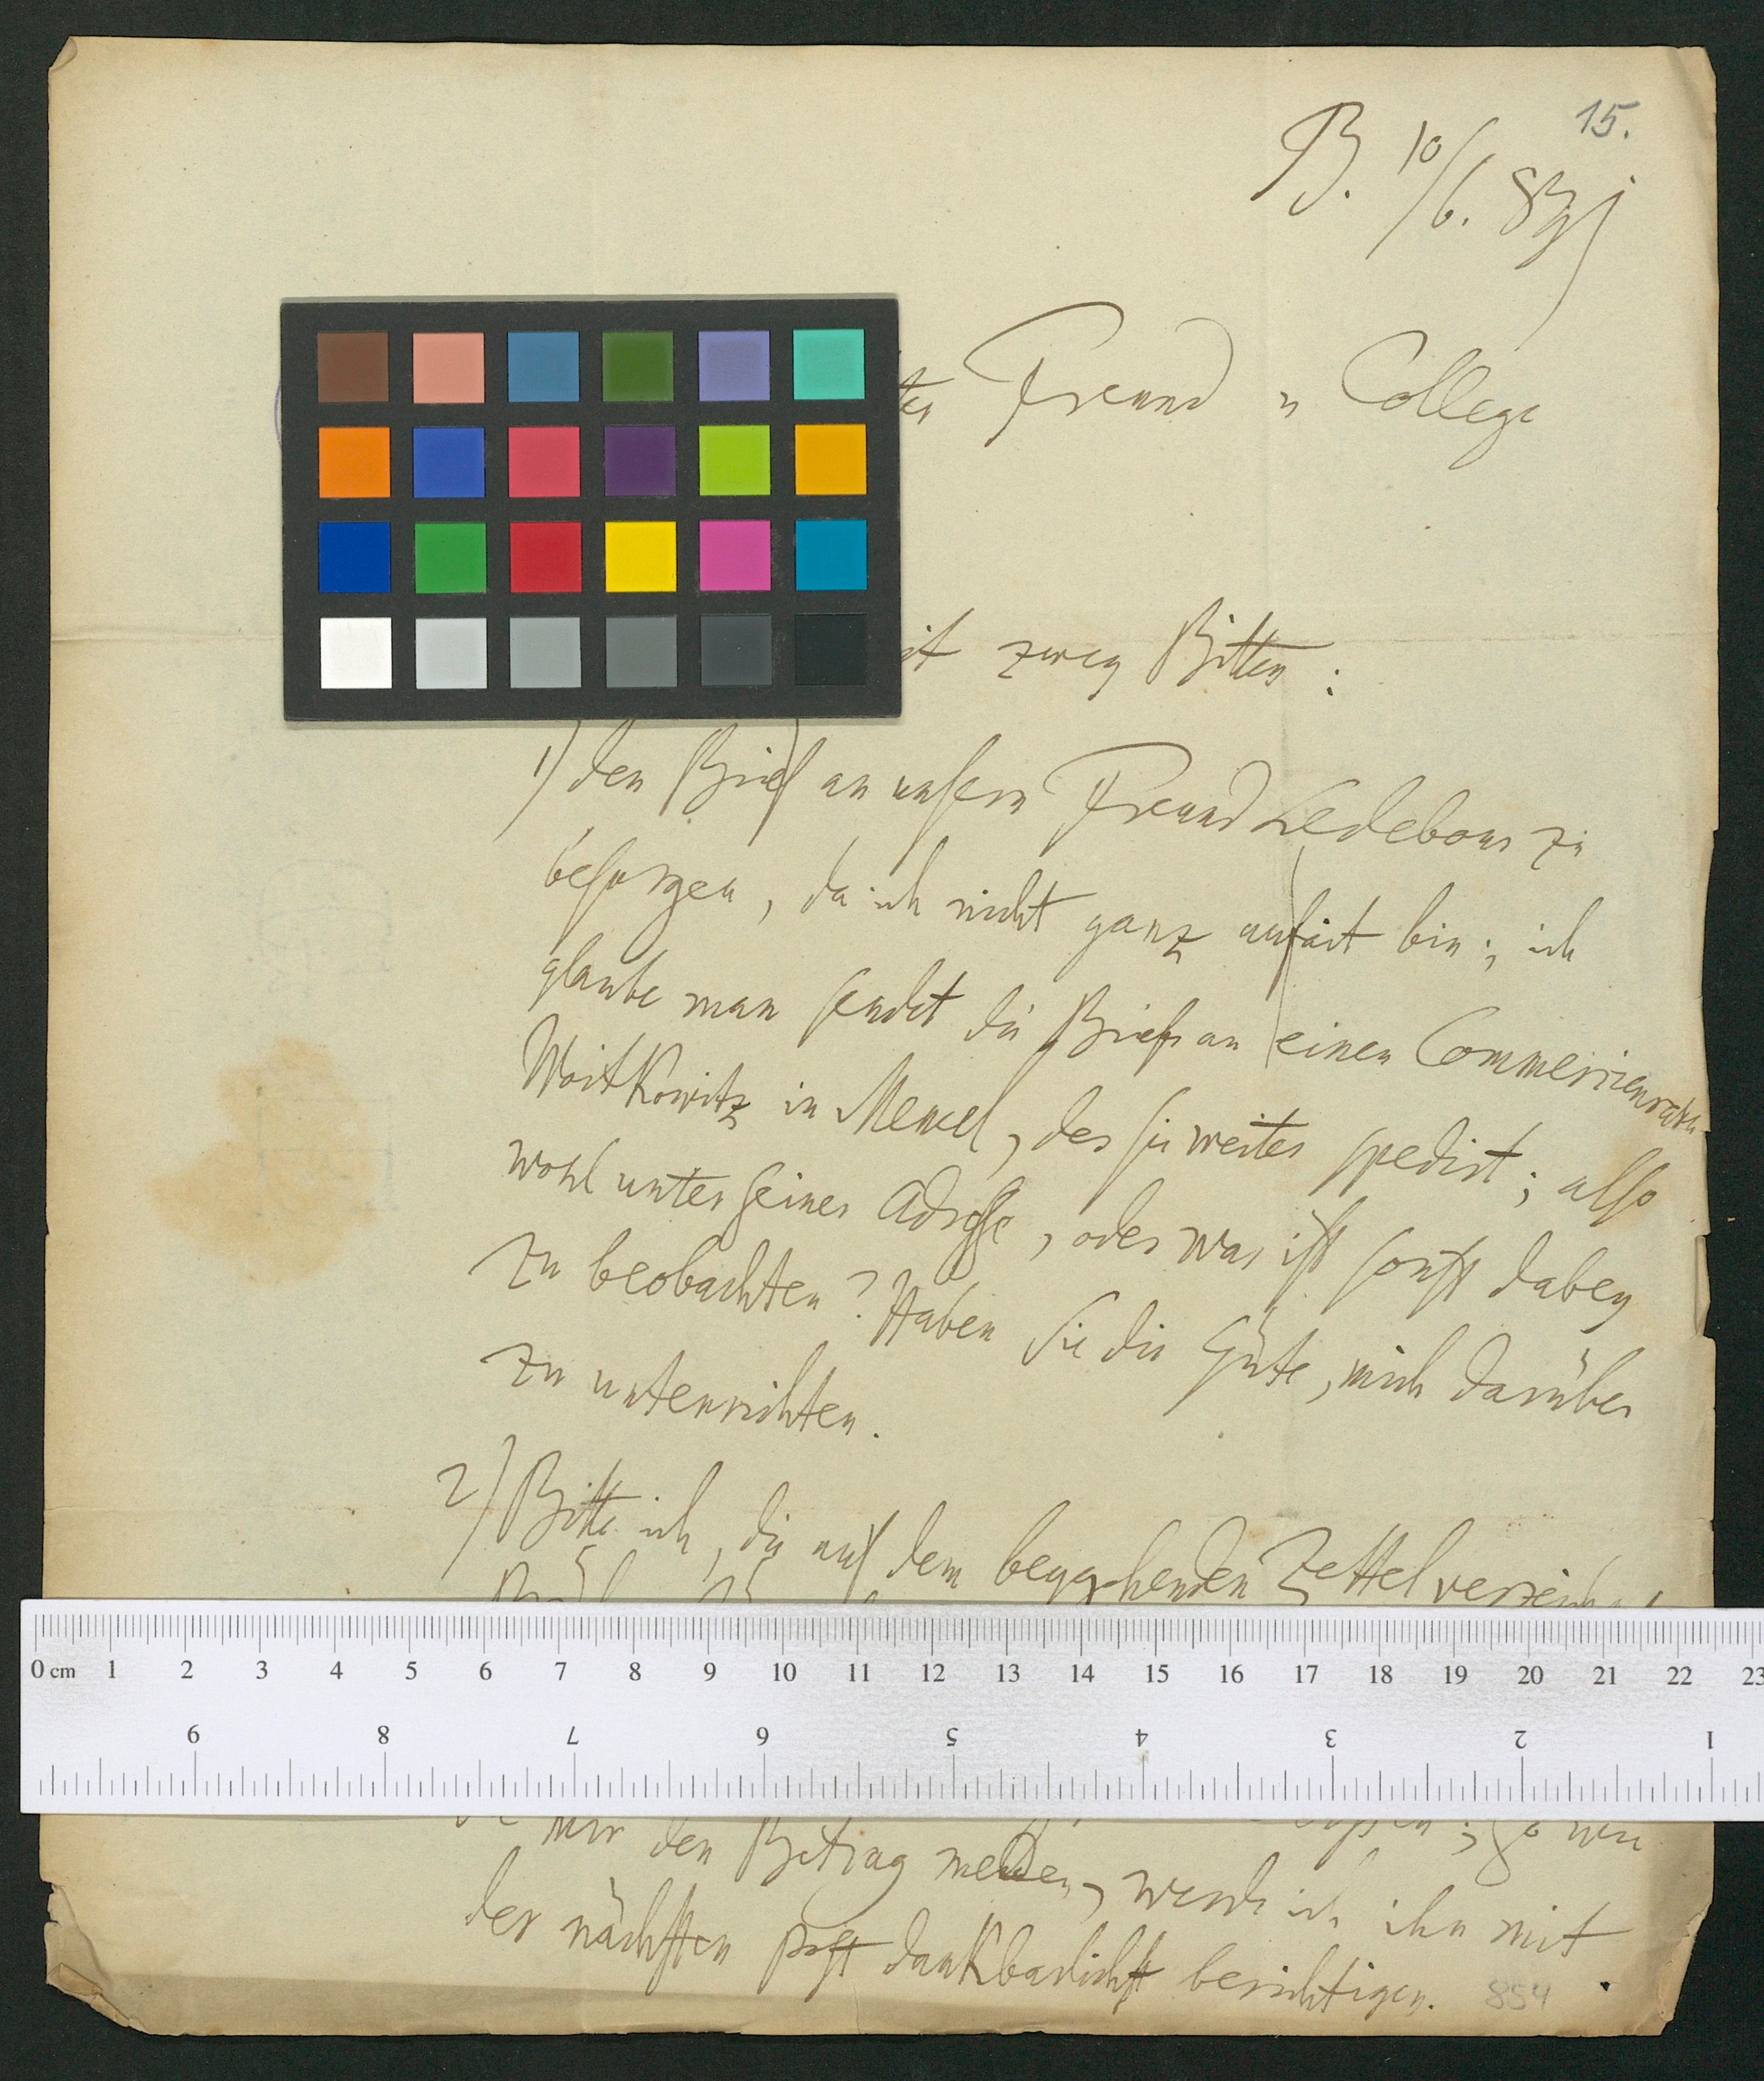 15.
B. 10/6.
Freund u College
zwey Bitten :
1) den Brief an unsern Freund Ledebour zu
besorgen, da ich nicht ganz au fait bin; ich
glaube man sendet die Briefe an einen Commerzienrath
Woitkowitz in Memel, der sie weiter spedirt; also
wohl unter seiner Adresse, oder was ist sonst dabey
zu beobachten? Haben Sie die Güte, mich darüber
zu unterrichten.
2) Bitte ich, die auf dem beygehenden Zettel
0 cm 1 2 3 4 5 6 7 8 9 10 11 12 13 14 15 16 17 18 19 20 21 22 23
9 8 7 6 5 4 3 2 1
mir den Betrag melden, werde ich ihn mit
der nächsten Post dankbarlichst berichtigen.
854